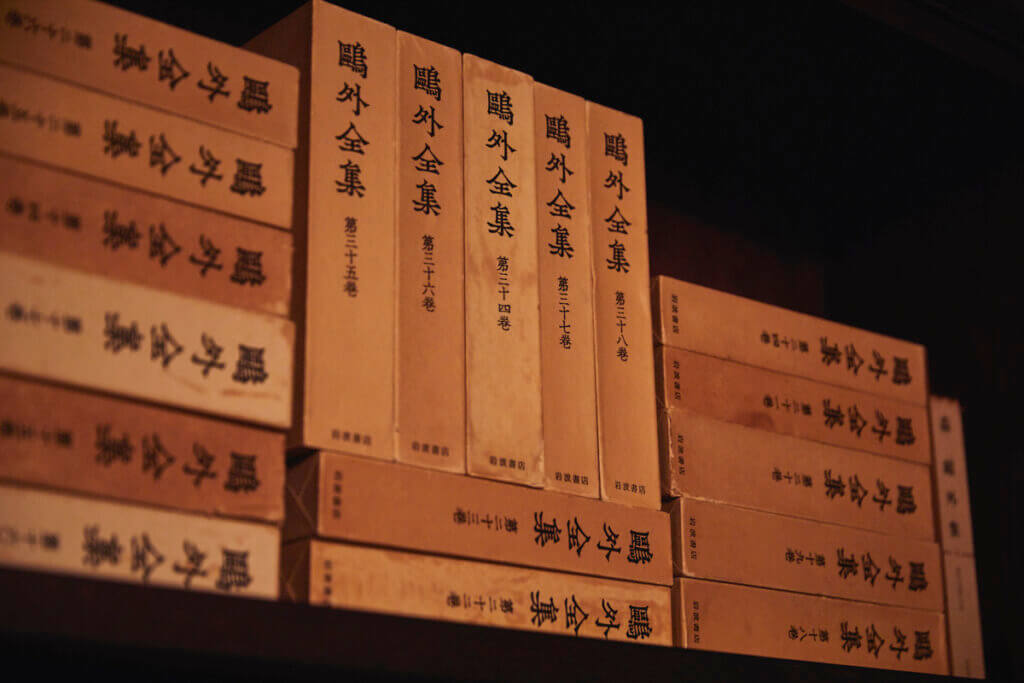 鷗外全集 第二十六巻
鷗外全集 第二十五巻
鷗外全集 第十四巻
鷗外全集
鷗外全集
鷗外全集
鷗外全集 第三十五巻 岩波書店
鷗外全集 第三十六巻 岩波書店
鷗外全集 第三十四巻 岩波書店
鷗外全集 第三十七巻 岩波書店
鷗外全集 第三十八巻 岩波書店
鷗外全集 第二十三巻 岩波書店
鷗外全集 第二十二巻 岩波書店
鷗外全集 第二十四巻 岩波書店
鷗外全集 第二十一巻 岩波書店
鷗外全集 第二十巻 岩波書店
鷗外全集 第十九巻 岩波書店
鷗外全集 第十八巻 岩波書店